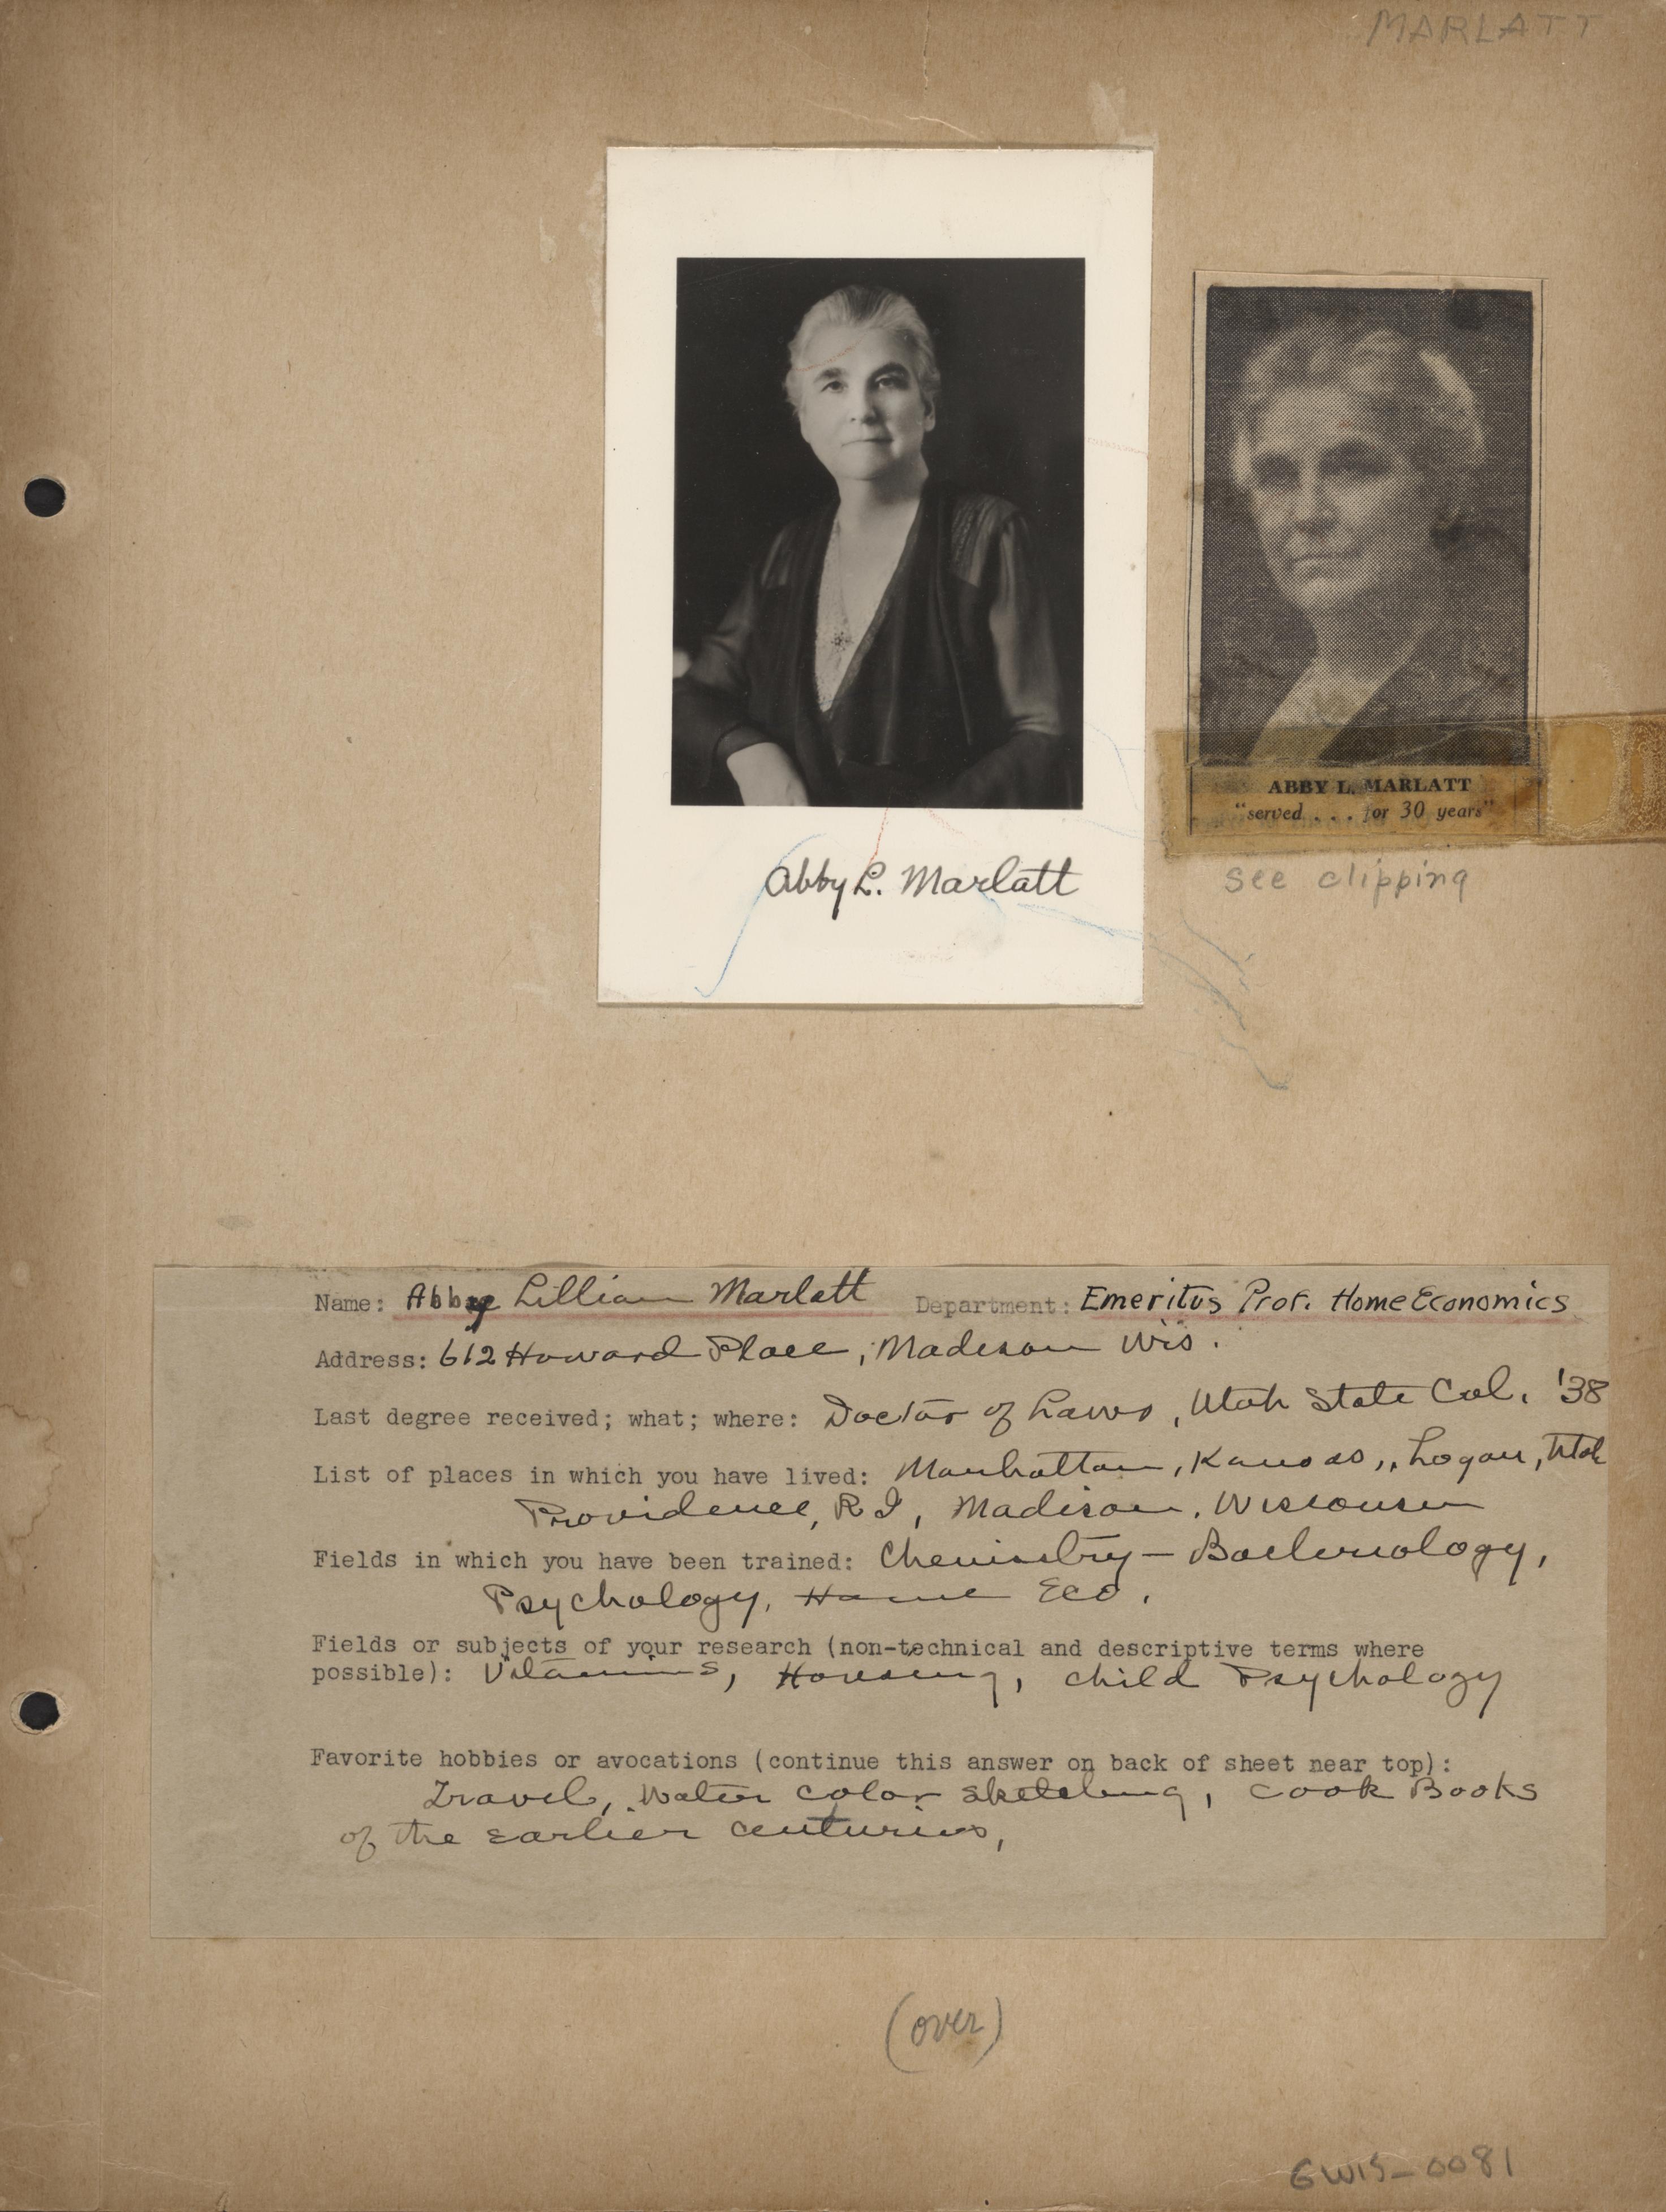 MARLATT
ABBY L. MARLATT
"served . . . for 30 years"
Abby L. Marlatt
see clipping
Name: Abby Lillian Marlatt Department: Emeritus Prof. Home Economics
Address: 612 Howard Place, Madison Wis.
Last degree received; what; where: Doctor of Laws, Utah State Col. '38
List of places in which you have lived: Manhattan, Kansas,, Logan, Utah
Providence, R I, Madison, Wisconsin
Fields in which you have been trained: Chemistry — Bacteriology,
Psychology, Home Eco.
Fields or subjects of your research (non-technical and descriptive terms where
possible): Vitamins, Housing, child Psychology
Favorite hobbies or avocations (continue this answer on back of sheet near top):
Travel, Water color sketching, Cook Books
of the earlier centuries,
(over)
GWIS-0081